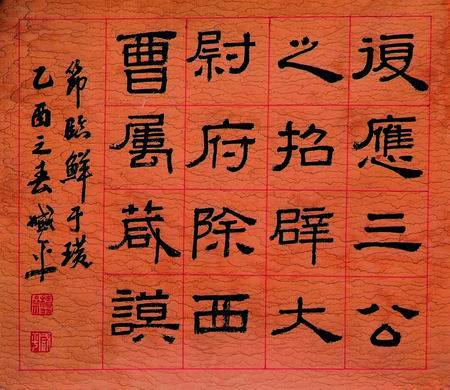 復應三公
之招辟大
尉府除西
曹属葴謨
節臨鮮于璜
乙酉之春